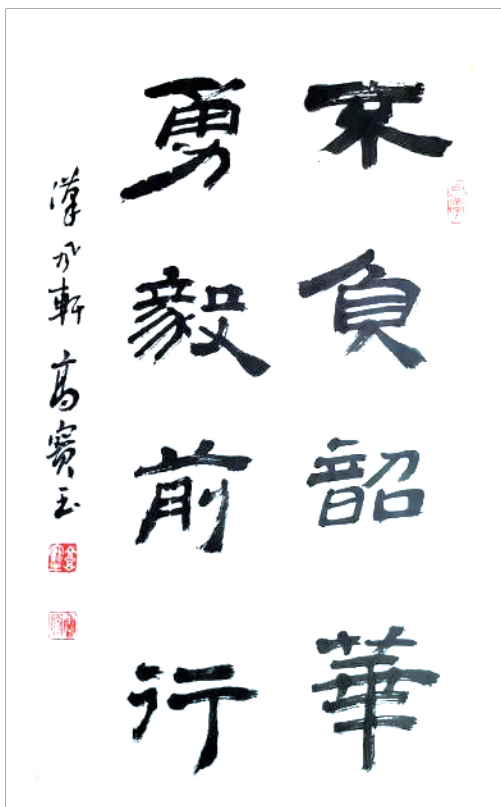 不負韶華
勇毅前行
漢風軒 高寶玉